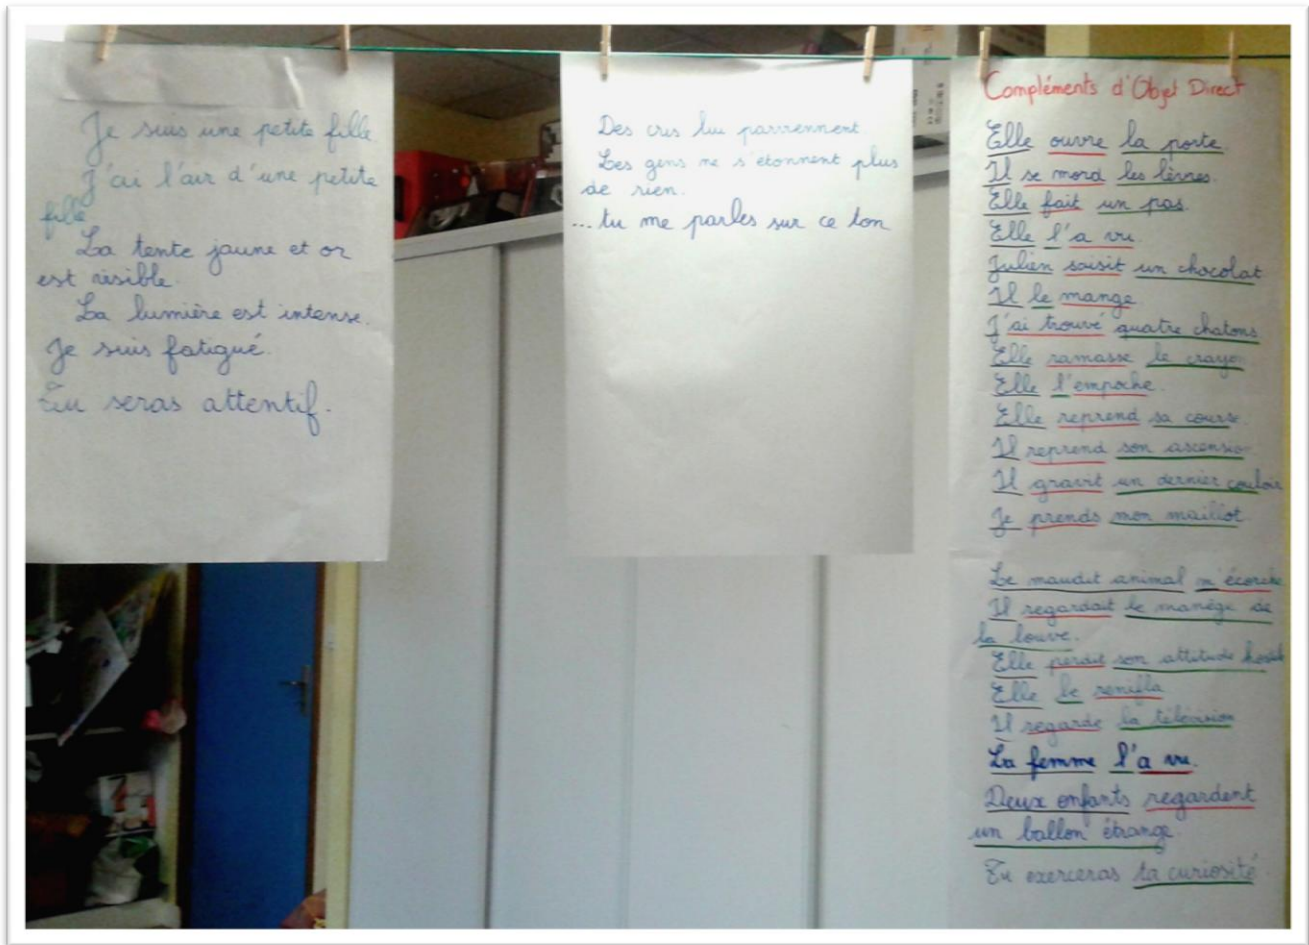 Je suis une petite fille
J'ai l'air d'une petite
fille
La tente jaune et or
est visible.
La lumière est intense.
Je suis fatigué.
Tu seras attentif.
Des cris lui parviennent
Les gens ne s'étonnent plus
de rien.
...tu me parles sur ce ton
Compléments d'Objet Direct
Elle ouvre la porte.
Il se mord les lèvres.
Elle fait un pas.
Elle l'a vu.
Julien saisit un chocolat
Il le mange.
J'ai trouvé quatre chatons
Elle ramasse le crayon
Elle l'empoche.
Elle reprend sa course.
Il reprend son ascension
Il gravit un dernier couloir
Je prends mon maillot.
Le maudit animal m'écorche
Il regardait le manège de
la louve.
Elle perdit son attitude hostile
Elle le renifla
Il regarde la télévision
La femme l'a vu.
Deux enfants regardent
un ballon étrange.
Tu exerceras ta curiosité.